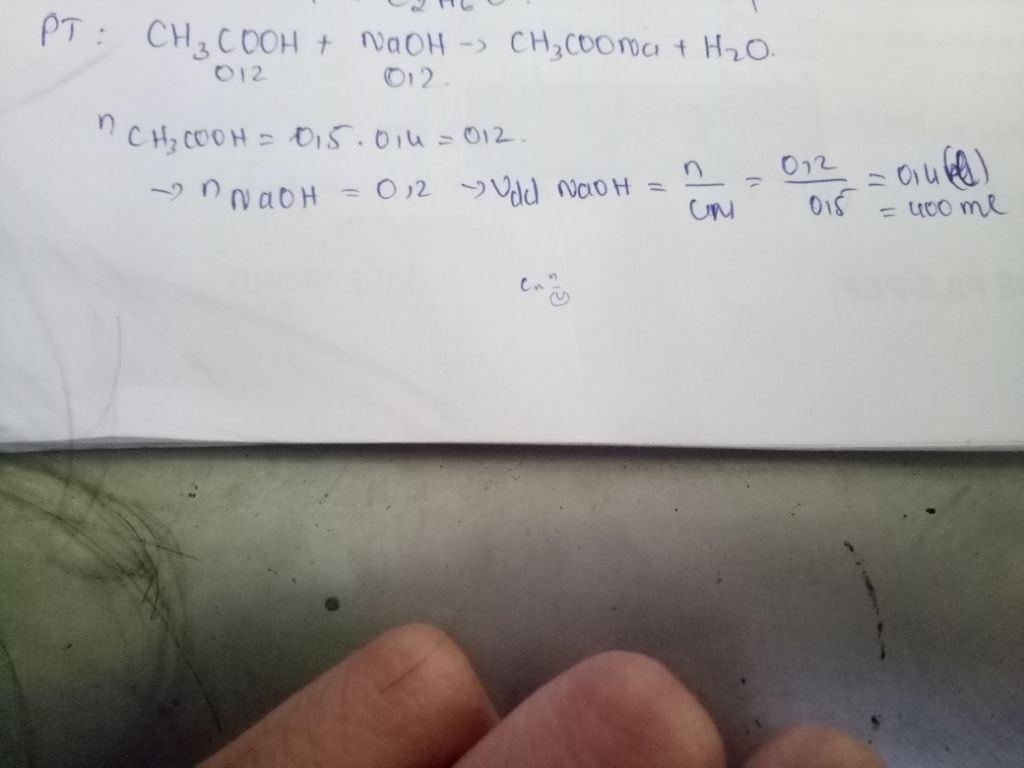 C2H6O.
PT: CH3COOH + NaOH -> CH3COONa + H2O.
0,2 0,2
n CH3COOH = 0,5 . 0,4 = 0,2.
-> n NaOH = 0,2 -> Vdd NaOH = n / CM = 0,2 / 0,5 = 0,4 (l)
= 400 ml